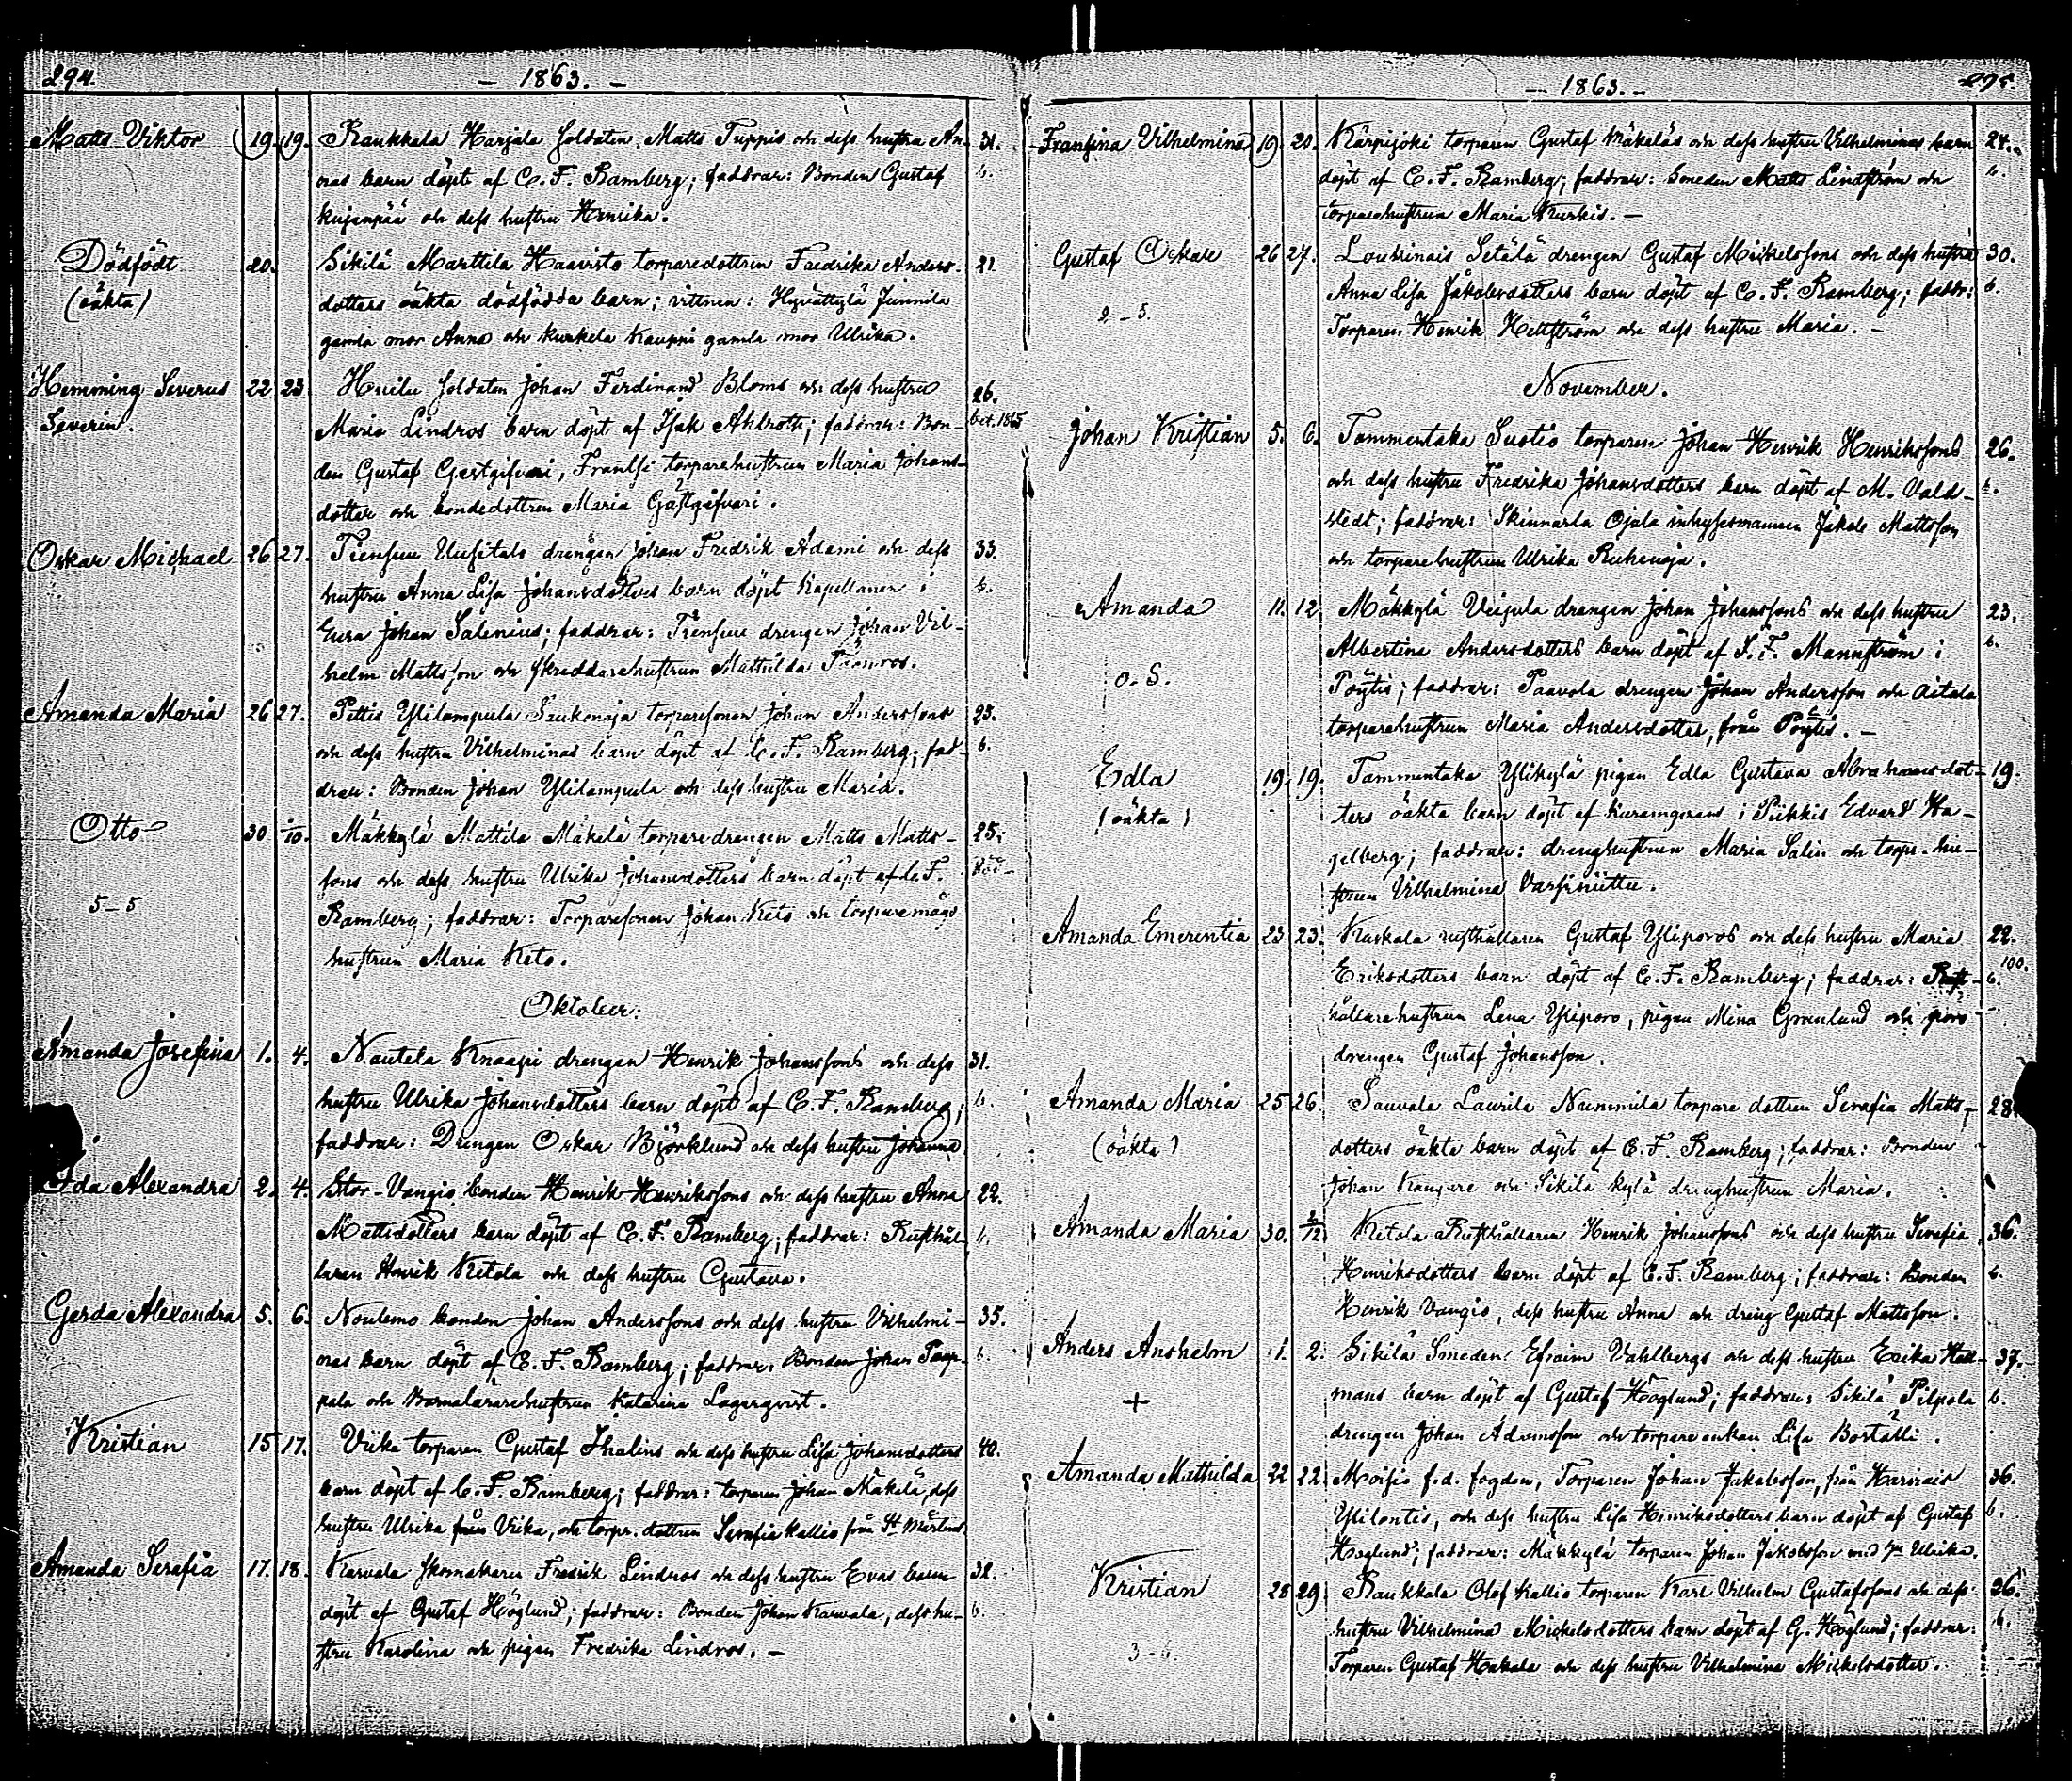 294. — 1863. —
Matts Viktor 19. 19. Raukkala Harjala soldaten Matts Tuppis och dess hustru An- 31.
nas barn döpt af C. F. Ramberg; faddrar: Bonden Gustaf b.
Kujanpää och dess hustru Henrika.
Dödfödt 20. Sikilä Marttila Haavisto torparedottren Fredrika Anders- 21.
(oäkta) dotters oäkta dödfödda barn; vittnen: gamla mor Anna och Kurkela Kauppi gamla mor Ulrika.
Hemming Severus 22 23. soldaten Johan Ferdinand Bloms och dess hustru 26.
Severin. Maria Lindros barn döpt af Isak Ahlroth; faddrar: Bon- bet. 1865
den Gustaf Gestgifvari, Frantsi torparehustrun Maria Johans-
dotter och bondedottren Maria Gästgifvari.
Oskar Michael 26 27. Tiensuu Uusitalo drängen Johan Fredrik Adami och dess 33.
hustru Anna Lisa Johansdotters barn döpt Kapellanen i b.
Eura Johan Salenius; faddrar: Tiensuu drengen Johan Vil-
helm Mattsson och skraddarehustrun Mathilda
Amanda Maria 26 27. Pettis Ylilampula torparesonen Johan Anderssons 25.
och dess hustru Vilhelminas barn döpt af C. F. Ramberg; fad- b.
drar: Bonden Johan Ylilampula och dess hustru Maria.
Otto 30 /10. Mäkkylä Mattila Mäkelä torparedrengen Matts Matts- 25.
sons och dess hustru Ulrika Johansdotters barn döpt af C. F.
5–5 Ramberg; faddrar: Torparesonen Johan Keto och torparemågs
hustrun Maria Keto.
Oktober.
Amanda Josefina 1. 4. Nautela Knaapi drengen Henrik Johanssons och dess 31.
hustru Ulrika Johansdotters barn döpt af C. F. Ramberg; b.
faddrar: Drengen Oskar Björklund och dess hustru Johanna
Ida Alexandra 2. 4. Stor-Vangio bonden Henrik Henrikssons och dess hustru Anna 22.
Mattsdotters barn döpt af C. F. Ramberg; faddrar: Rusthål- b.
laren Henrik Ketola och dess hustru Gustava.
Gerda Alexandra 5. 6. Noulemo bonden Johan Anderssons och dess hustru Vilhelmi- 35.
nas barn döpt af C. F. Ramberg; faddrar: Bonden Johan Paap- b.
pala och Barnalärarehustrun Katarina Lagerqvist.
Kristian 15 17. Viika torparen Gustaf Thalins och dess hustru Lisa Johansdotters 40.
barn döpt af C. F. Ramberg; faddrar: torparen Johan Mäkelä, dess
hustru Ulrika från Viika, och torpr. dottren Serafia Kallio från St. Mårtens
Amanda Serafia 17. 18. Karvala skomakaren Fredrik Lindros och dess hustru Evas barn 32.
döpt af Gustaf Höglund; faddrar: Bonden Johan Karvala, dess hu- b.
stru Karolina och pigan Fredrika Lindros. —
— 1863. — 295.
Fransina Vilhelmina 19. 20. Kärpijoki torparen Gustaf Mäkeläs och dess hustru Vilhelminas barn 24.
döpt af C. F. Ramberg; faddrar: Smeden Matts Lindström och b.
torparehustrun Maria Kurkis. —
Gustaf Oskar 26 27. Loukinais Setälä drengen Gustaf Mickelssons och dess hustru 30.
Anna Lisa Jakobsdotters barn döpt af C. F. Ramberg; faddr: b.
2–5. Torparen Henrik Hellström och dess hustru Maria. —
November.
Johan Kristian 5. 6. Tammentaka Suotio torparen Johan Henrik Henrikssons 26.
och dess hustru Fredrika Johansdotters barn döpt af M. Vald- b.
stedt; faddrar: Skinnarla Ojala inhysesmannen Jakob Mattsson
och torparehustrun Ulrika Ruhenoja.
Amanda 11. 12. Mäkkylä Veijula drengen Johan Johanssons och dess hustru 23.
Albertina Andersdotters barn döpt af S. F. Mannström i b.
o. S. Pöytis; faddrar: Paavola drengen Johan Andersson och Aitala
torparehustrun Maria Andersdotter, från Pöytis. —
Edla 19. 19. Tammentaka Ylikylä pigan Edla Gustava Abrahamsdot- 19.
(oäkta) ters oäkta barn döpt af i Piikkis Edvard Ha-
gelberg; faddrar: drenghustrun Maria Salin och torpr. hu-
strun Vilhelmina Varsiniittu.
Amanda Emerentia 23 23. Kaskala rusthållaren Gustaf Yliporos och dess hustru Maria 22.
Eriksdotters barn döpt af C. F. Ramberg; faddrar: Rust- b. 100.
hållarehustrun Lena Yliporo, pigan Mina Granlund och
drengen Gustaf Johansson.
Amanda Maria 25 26. Sauvala Laurila Nummila torpare dottren Serafia Matts- 28.
(oäkta) dotters oäkta barn döpt af C. F. Ramberg; faddrar: Bonden
Johan Kangare och Sikilä kylä drenghustrun Maria.
Amanda Maria 30. 2/12 Ketola Rusthållaren Henrik Johanssons och dess hustru Serafia 36.
Henriksdotters barn döpt af C. F. Ramberg; faddrar: Bonden b.
Henrik Vangio, dess hustru Anna och dreng Gustaf Mattsson.
Anders Anshelm 1. 2. Sikilä Smeden Efraim Vahlbergs och dess hustru Erika Hell- 37.
+ mans barn döpt af Gustaf Höglund; faddrar: Sikilä Pilpola b.
drengen Johan Adamsson och torpareenkan Lisa
Amanda Mathilda 22 22. Moisio f. d. fogden, Torparen Johan Jakobsson, från Harvais 36.
Ylilontis, och dess hustru Lisa Henriksdotters barn döpt af Gustaf b.
Höglund; faddrar: Mäkkylä torparen Johan Jakobsson med hu Ulrika.
Kristian 28 29. Raukkala Olof Kallio torparen Karl Vilhelm Gustafssons och dess 26.
hustru Vilhelmina Mickelsdotters barn döpt af G. Höglund; faddrar: b.
3–6. Torparen Gustaf Hakala och dess hustru Vilhelmina Mickelsdotter.